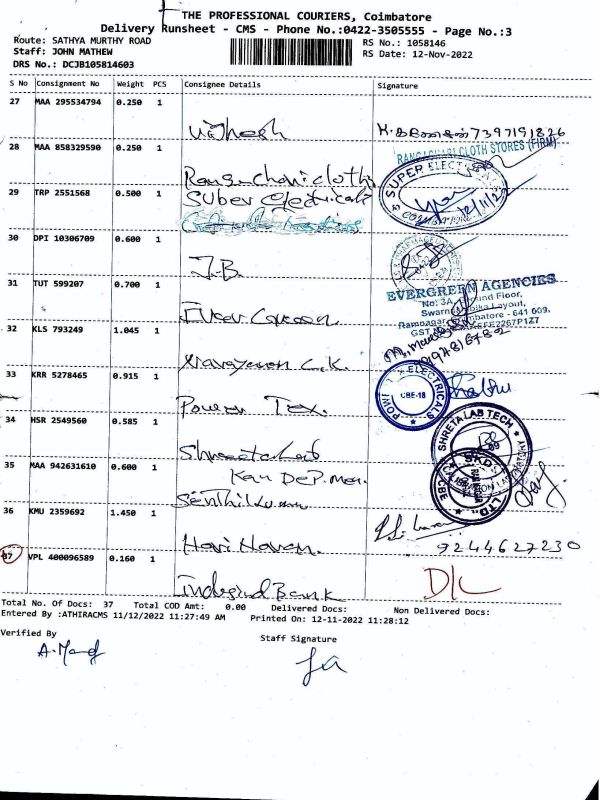 THE PROFESSIONAL COURIERS, Coimbatore
Delivery Runsheet - CMS - Phone No.:0422-3505555 - Page No.:3
Route: SATHYA MURTHY ROAD
Staff: JOHN MATHEW
DRS No.: DCJB105814603
RS No.: 1058146
RS Date: 12-Nov-2022
S No Consignment No Weight PCS Consignee Details Signature
27 MAA 295534794 0.250 1
Vignesh 7397191826
28 MAA 858329590 0.250 1
RANGACHARI CLOTH STORES (FIRM)
Rangachari cloths
29 TRP 2551568 0.500 1
Suber Electricals
SUPER ELECT
12/11/22
30 DPI 10306709 0.600 1
J.B.
31 TUT 599207 0.700 1
EVERGREEN AGENCIES
No: 3A, Ground Floor,
Layout,
Ramnagar, Coimbatore - 641 009.
Ever Green
32 KLS 793249 1.045 1
Narayanan C.K.
33 KRR 5278465 0.915 1
ELECTRICALS
CBE-18
Power Tex.
34 HSR 2549560 0.585 1
SHRETA LAB TECH
Shreeta Lab
35 MAA 942631610 0.600 1
Senthil Kumar
36 KMU 2359692 1.450 1
Hari Haran.
9244627230
37 VPL 400096589 0.160 1
Indusind Bank
D/L
Total No. Of Docs: 37 Total COD Amt: 0.00 Delivered Docs: Non Delivered Docs:
Entered By :ATHIRACMS 11/12/2022 11:27:49 AM Printed On: 12-11-2022 11:28:12
Verified By
Staff Signature